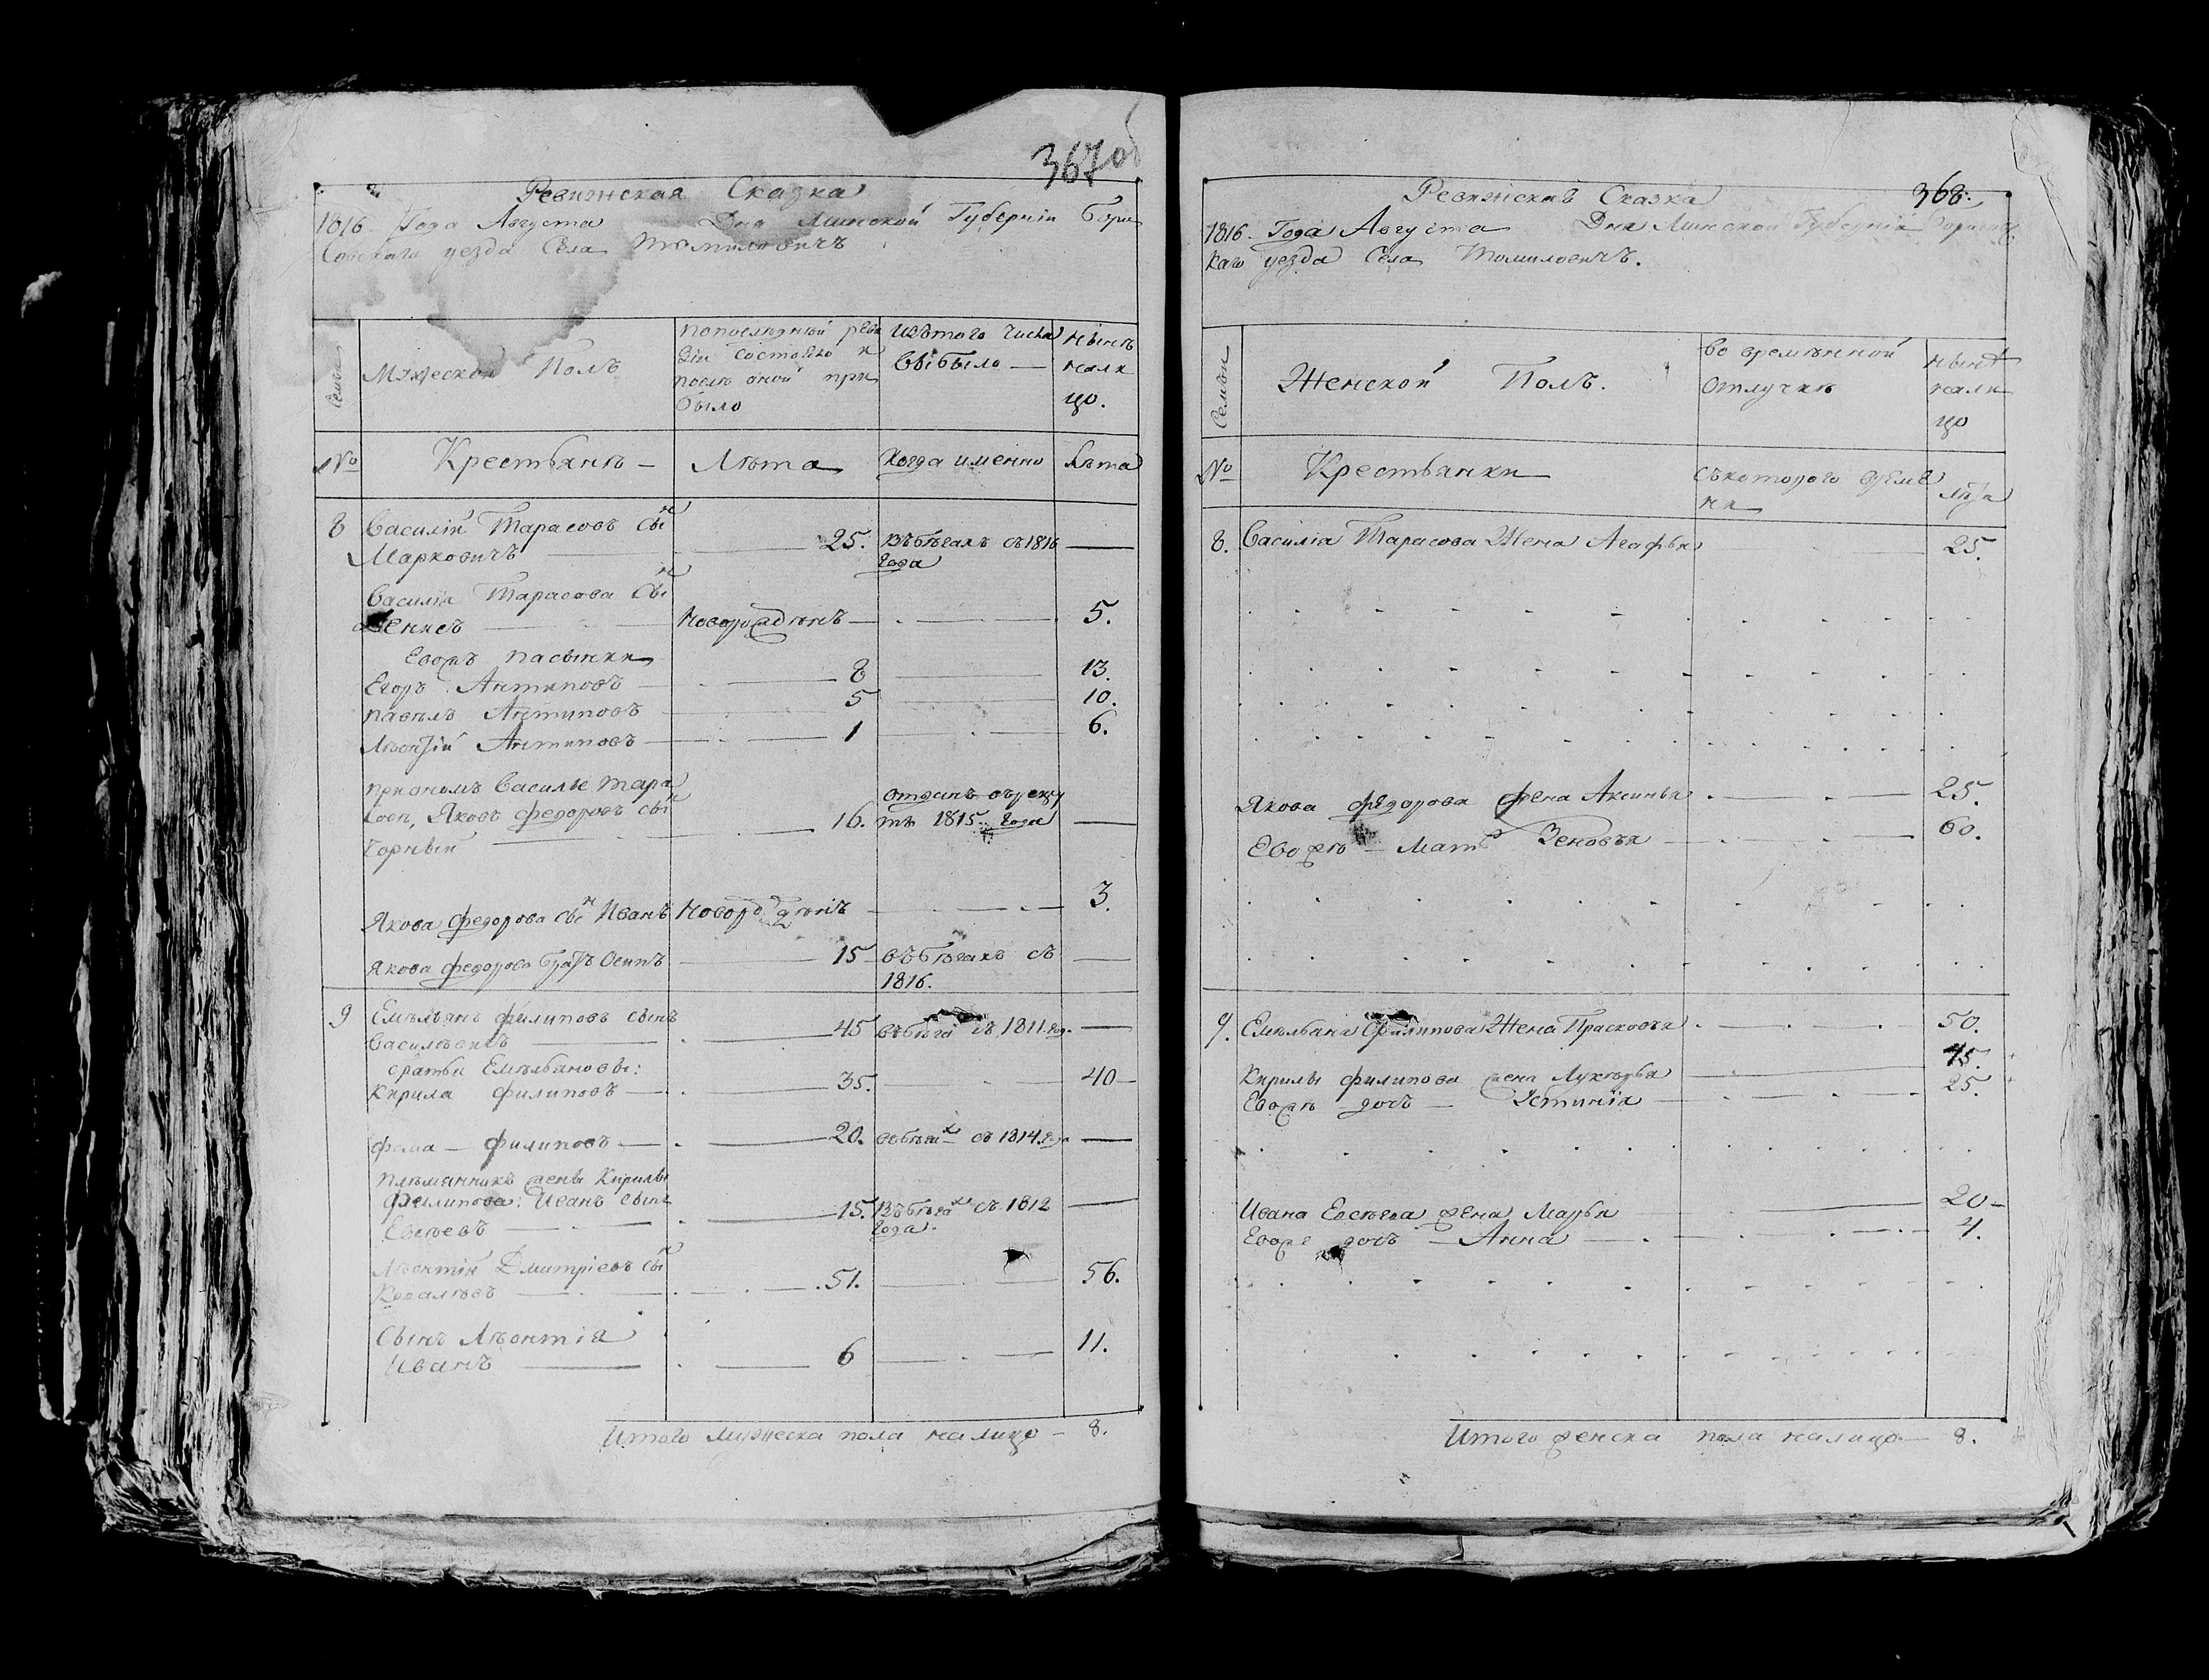 367 об
Ревижская Сказка
1816 Года Августа Дня Минской Губерніи Бори
совскаго уезда Села Томиловичъ
Семьи
Мужеской Полъ
попоследнѣй реви
зіи состояло и
после оной при
было
Изътого числа
выбыло
нынѣ
нали
цо.
№
Крестьянѣ
Лѣта
Когда именно
Лѣта
8 Василій Тарасовъ сынъ
Марковичъ 25. Въбѣгахъ съ 1816
года
Василія Тарасова Сынъ
Денисъ Новорожденъ 5.
Евожъ пасынки
Егоръ Антиповъ 8 13.
Павѣлъ Антиповъ 5 10.
Лѣонтій Антиповъ 1 6.
приономъ Василье Тара
совѣ, Яковъ федоровъ сынъ
Чорный 16. отданъ врекру
ты 1815. года
Якова федорова сынъ Иванъ Новорожденъ 3.
Якова федорова братъ Осипъ 15 въбѣгахъ съ
1816.
9 Емѣльянъ филиповъ сынъ
Василѣвичъ 45 въбѣга съ 1811. год.
братья Емѣльяновы:
Кирила филиповъ 35. 40
фома филиповъ 20. въбѣгах съ 1814. года
племянникъ жены Кирилы
Филипова: Иванъ сынъ
Евсѣевъ 15. Въбѣгах съ 1812
года.
Лѣонтій Дмитріевъ сынъ
Ковалѣвъ 51. 56.
Сынъ Лѣонтія
Иванъ 6 11.
Итого мужеска пола налицо 8.
368.
Ревижскаъ Сказка
1816 Года Августа Дня Минской Губерніи Борисовс
каго уезда Села Томиловичъ.
Семьи
Женской Полъ.
Во времѣнной
отлучкѣ
нынѣ
нали
цо
№
Крестьянки
съкоторого врѣме
ни
лѣта
8. Василія Тарасова Жена Агафья 25.
Якова федорова жена Аксинья 25.
Евожѣ мать Зеновья 60.
9. Емѣльяна Филипова Жена Прасковья 50.
Кирилы филипова жена Лукѣрья 45.
Евожѣ дочь Устинія 25.
Ивана Евсѣева жена Марья 20
Евоже дочь Анна 4.
Итого женска пола налицо 8.